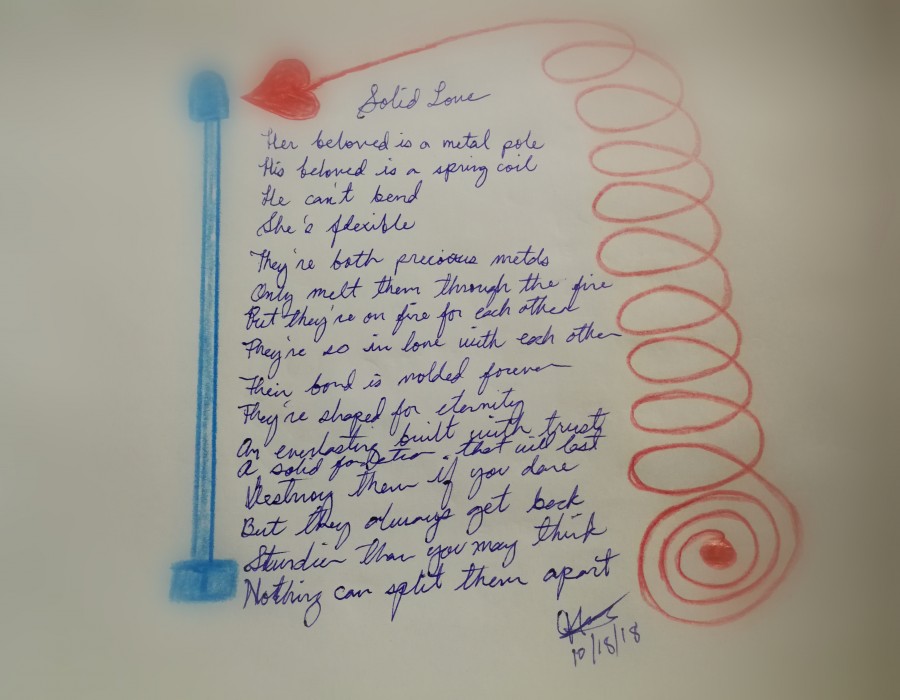 Solid Love
Her beloved is a metal pole
His beloved is a spring coil
He can't bend
She's flexible
They're both precious metals
Only melt them through the fire
But they're on fire for each other
They're so in love with each other
Their bond is molded forever
They're shaped for eternity
An everlasting built with trust
A solid that will last
Destroy them if you dare
But they always get back
Sturdier than you may think
Nothing can split them apart
10/18/18